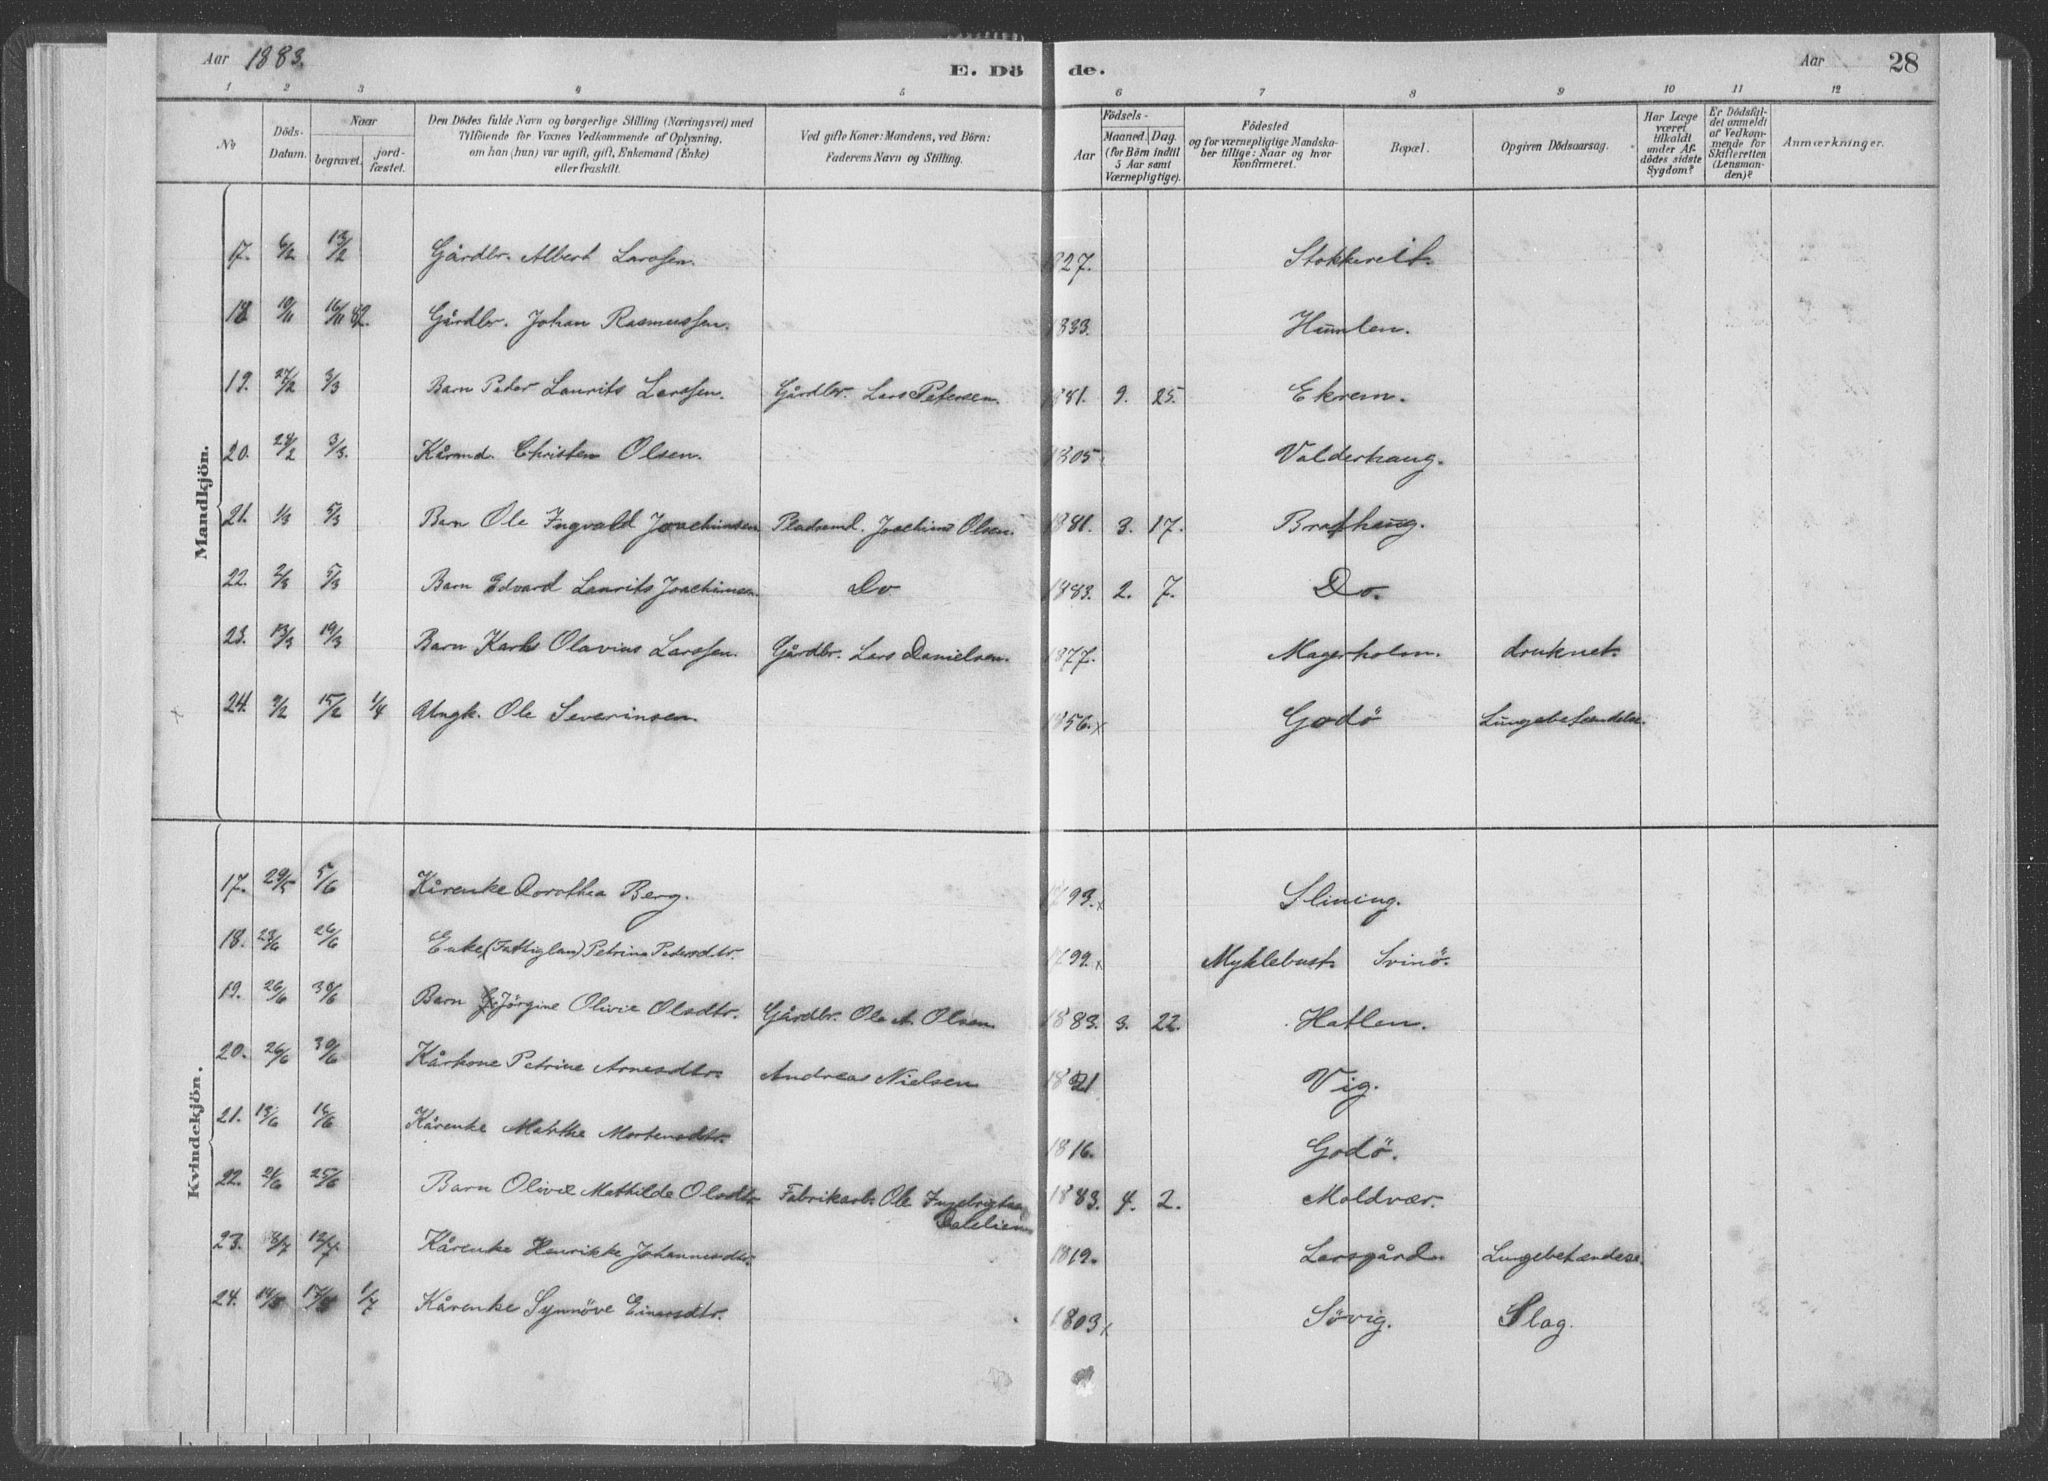 Aar 1883. E. Dö de. Aar 28
1 2 3 4 5 6 7 8 9 10 11 12
No
Döds-Datum.
Naar
begravet. jordfæstet.
Den Dödes fulde Navn og borgerlige Stilling (Næringsvei) med
Tilföiende for Voxnes Vedkommende af Oplysning,
om han (hun) var ugift, gift, Enkemand (Enke)
eller fraskilt.
Ved gifte Koner: Mandens, ved Börn:
Faderens Navn og Stilling.
Födsels-
Aar Maaned. Dag.
(for Börn indtil
5 Aar samt
Værnepligtige).
Födested
og for værnepligtige Mandskaber tillige: Naar og hvor
konfirmeret.
Bopæl.
Opgiven Dödsaarsag.
Har Læge
været
tilkaldt
under Afdödes sidste
Sygdom?
Er Dödsfaldet anmeldt
af Vedkommende for
Skifteretten
(Lensmanden)?
Anmærkninger.
Mandkjön.
17. 6/2 13/2 Gårdbr. Albert Larssen. 1827.
18 10/11 16/11 82. Gårdbr. Johan Rasmussen. 1833. Humlen.
19. 27/2 3/3 Barn Peder Laurits Larssen. Gårdbr. Lars Petersen. 1881. 9. 25. Ekrem.
20. 24/2 3/3. Kårmd. Christen Olsen. 1805. Valderhaug.
21. 1/3 5/3 Barn Ole Ingvald Joachimsen Pladsmd. Joachim Olsen. 1881. 3. 17. Brathaug.
22. 2/3 5/3 Barn Edvard Laurits Joachimsen Do 1883. 2. 7. Do.
23. 13/3 19/3 Barn Karls Olavius Larssen. Gårdbr. Lars Danielsen. 1877. Magerholm. druknet.
24. 9/2 15/2 1/4 Ungk. Ole Severinsen 1856. x Godö Lungebetændelse.
Kvindekjön.
17. 29/5 5/6 Kårenke Dorothea Berg. 1793. x Slining.
18. 23/6 26/6 Enke (Fattiglem) Petrine Pedersdtr. 1799. x Myklebust Svinö.
19. 26/6 30/6 Barn Jörgine Olivie Olsdtr. Gårdbr. Ole A. Olsen 1883. 3. 22. Hatlen.
20. 26/6 30/6 Kårkone Petrine Arnesdtr. Andreas Nielsen 1821 Vig.
21. 13/6 16/6 Kårenke Marthe Mortensdtr. 1816. Godö.
22. 21/6 25/6 Barn Olivie Mathilde Olsdtr Fabrikarb. Ole Ingebrigtsen 1883. 4. 2. Moldvær.
Dalelien
23. 8/7 12/7. Kårenke Henrikke Johannesdtr. 1819. Larsgård. Lungebetændelse.
24. 14/5 17/5 1/7 Kårenke Synnöve Einarsdtr. 1803 x Sövig. Slag.